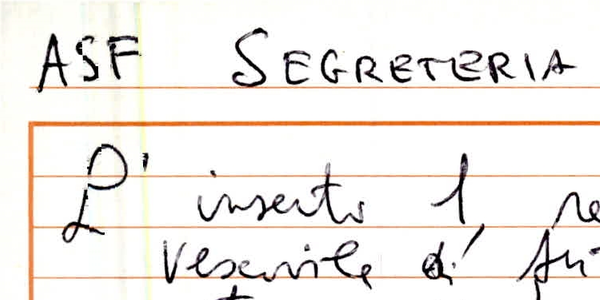 ASF SEGRETERIA
L' inserto 1
vescovile di